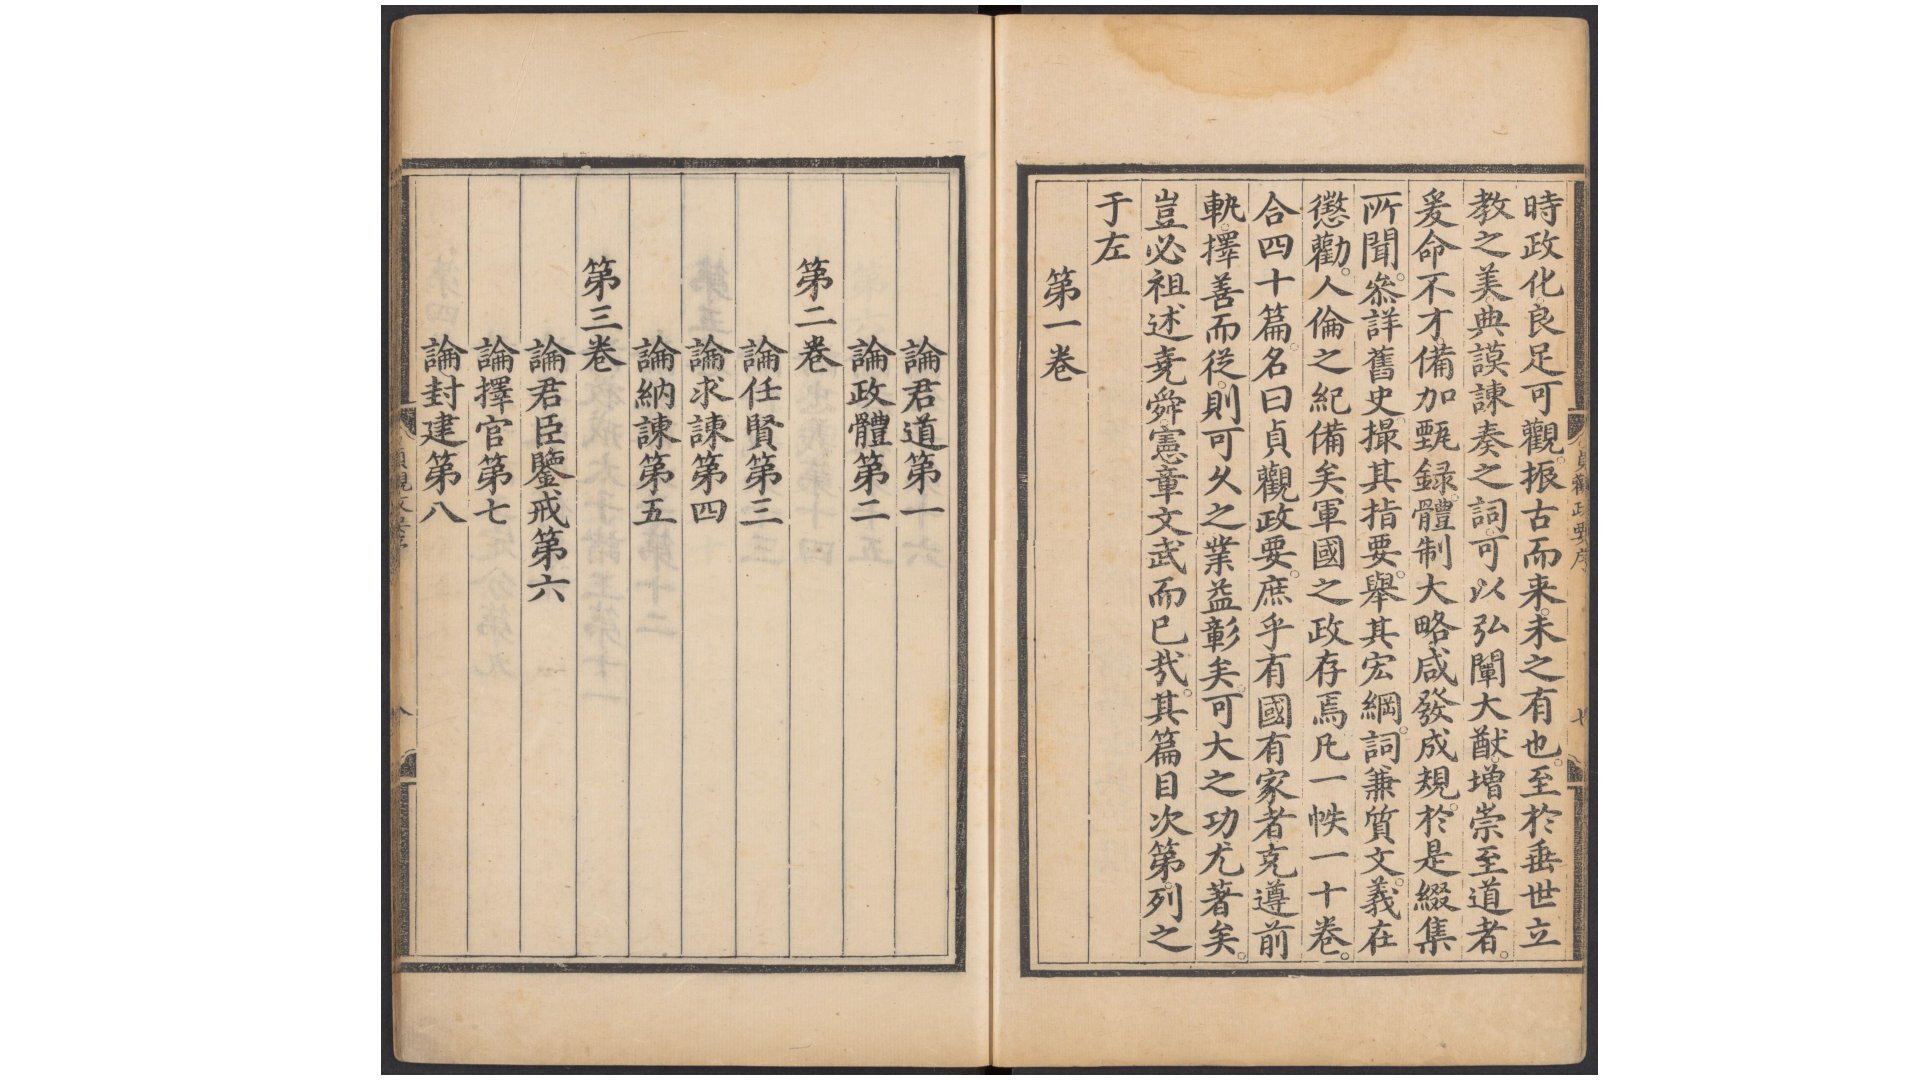 時政化良足可觀。振古而来。未之有也。至於垂世立
教之美。典謨諫奏之詞。可以弘闡大猷。增崇至道者。
爰命不才。備加甄録。體制大略。咸發成規。於是綴集
所聞。叅詳舊史。撮其指要。舉其宏綱。詞兼質文。義在
懲勸。人倫之紀備矣。軍國之政存焉。凡一帙一十卷。
合四十篇。名曰貞觀政要。庶乎有國有家者克遵前
軌。擇善而從。則可久之業益彰矣。可大之功尤著矣。
豈必祖述堯舜。憲章文武而已哉。其篇目次第。列之
于左
第一卷
貞觀政要序
七
論君道第一
論政體第二
第二卷
論任賢第三
論求諫第四
論納諫第五
第三卷
論君臣鑒戒第六
論擇官第七
論封建第八
八